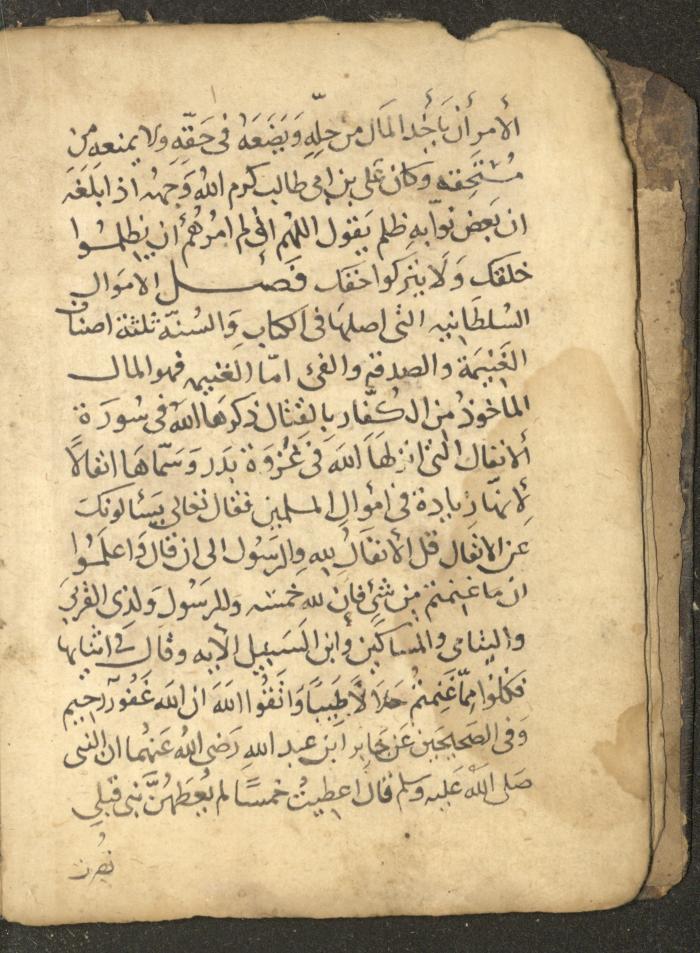 الأمر أن يأخذ المال من حلّه ويضعه في حقّه ولا يمنعه من
مستحقه وكان علي بن ابي طالب كرم الله وجهه اذا بلغه
ان بعض نوّابه ظلم يقول اللهم اني لم امرهم أن يظلموا
خلقك ولا يتركوا حقك فصل الاموال
السلطانيه التى اصلها في الكتاب والسنة ثلثة اصناف
الغنيمة والصدقة والفئ امّا الغنيمه فهو المال
المأخوذ من الكفّار بالقتال ذكرها الله في سورة
الانفال التى انزلها الله في غزوة بدر وسمّاها انفالاً
لأنها زيادة في اموال المسلمين فقال تعالى يسألونك
عن الانفال قل الأنفال لله والرسول الى ان قال واعلموا
ان ما غنمتم من شئ فان لله خمسه وللرسول ولذى القربى
واليتامى والمساكين وابن السبيل الآيه وقال في اثنايها
فكلوا ممّا غنمتم حلالاً طيباً واتقوا الله ان الله غفور رحيم
وفى الصحيحين عن جابر ابن عبد الله رضى الله عنهما ان النبى
صلى الله عليه وسلم قال اعطيت خمساً لم يعطهنّ نبى قبلى
نصرت